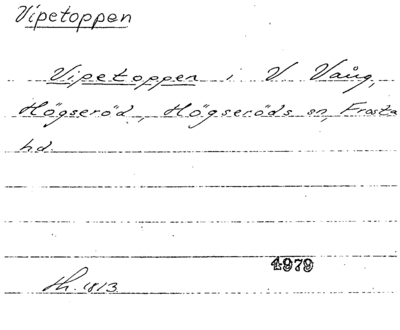 Vipetoppen
Vipetoppen i V Vång,
Högseröd, Högseröds sn, Frosta
hd.
4979
Sk. 1813